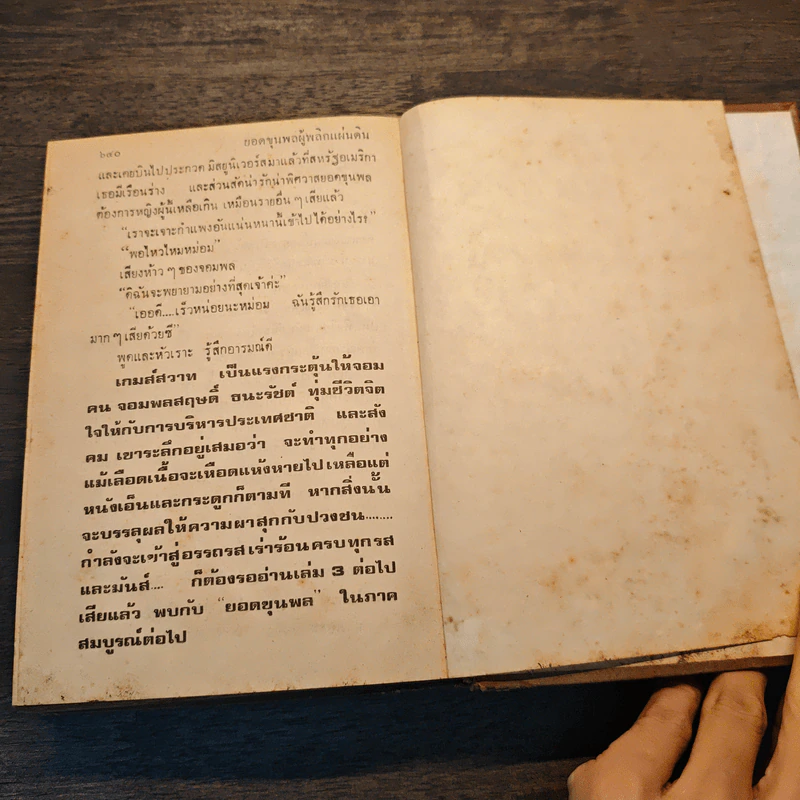 ๒๔๐
ยอดขุนพลผู้พลิกแผ่นดิน
และเคยบินไปประกวด มิสยูนิเวอร์สมาแล้วที่สหรัฐอเมริกา
เธอมีเรือนร่าง และส่วนสัดน่ารักน่าพิศวาสยอดขุนพล
ต้องการหญิงผู้นี้เหลือเกิน เหมือนรายอื่น ๆ เสียแล้ว
"เราจะเจาะกำแพงอันแน่นหนานี้เข้าไปได้อย่างไร?"
"พอไหวไหมหม่อม"
เสียงห้าว ๆ ของจอมพล
"ดิฉันจะพยายามอย่างที่สุดเจ้าค่ะ"
"เออดี....เร็วหน่อยนะหม่อม ฉันรู้สึกรักเธอเอา
มาก ๆ เสียด้วยซี"
พูดและหัวเราะ รู้สึกอารมณ์ดี
เกมส์สวาท เป็นแรงกระตุ้นให้จอม
คน จอมพลสฤษดิ์ ธนะรัชต์ ทุ่มชีวิตจิต
ใจให้กับการบริหารประเทศชาติ และสัง
คม เขาระลึกอยู่เสมอว่า จะทำทุกอย่าง
แม้เลือดเนื้อจะเหือดแห้งหายไป เหลือแต่
หนังเอ็นและกระดูกก็ตามที หากสิ่งนั้น
จะบรรลุผลให้ความผาสุกกับปวงชน........
กำลังจะเข้าสู่อรรถรส เร่าร้อน ครบทุกรส
และมันส์.... ก็ต้องรออ่านเล่ม 3 ต่อไป
เสียแล้ว พบกับ "ยอดขุนพล" ในภาค
สมบูรณ์ต่อไป